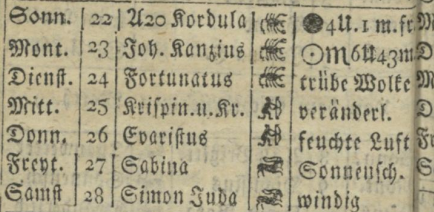 Sonn. 22 A20 Kordula ●4U. 1 m. fr
Mont. 23 Joh. Kanzius ☉♏6U43m
Dienst. 24 Fortunatus trübe Wolke
Mitt. 25 Krispin. u. Kr. veränderl.
Donn. 26 Evaristus feuchte Luft
Freyt. 27 Sabina Sonnensch.
Samst 28 Simon Juda windig